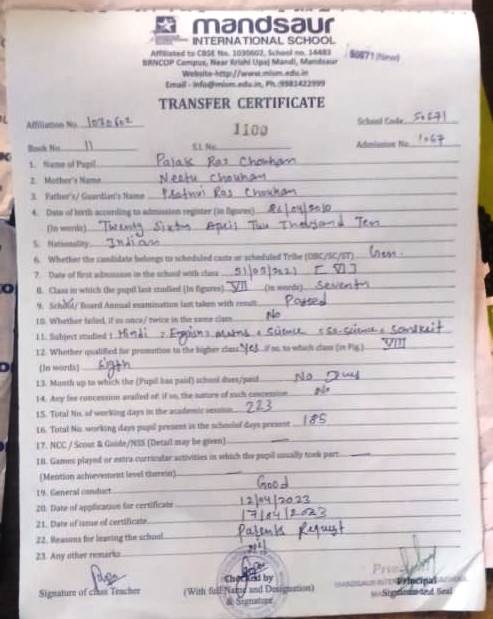 mandsaur
INTERNATIONAL SCHOOL
Affiliated to CBSE No. 1030602, School no. 14483
BRNCOP Campus, Near Krishi Upaj Mandi, Mandsaur
50671 (New)
Website-http://www.mism.edu.in
Email - info@mism.edu.in, Ph.:9981422999
TRANSFER CERTIFICATE
Affiliation No. 1030602 School Code 50671
1100
Book No. 11 S.I. No. Admission No. 1067
1. Name of Pupil Palak Rao Chouhan
2. Mother's Name Neetu Chouhan
3. Father's/ Guardian's Name Prathvi Rao Chouhan
4. Date of birth according to admission register (in figures) 26/04/2010
(In words) Twenty Sixth April Two Thousand Ten
5. Nationality Indian
6. Whether the candidate belongs to scheduled caste or scheduled Tribe (OBC/SC/ST) Gen.
7. Date of first admission in the school with class 31/07/2021 [VI]
8. Class in which the pupil last studied (In figures) VII (in words) Seventh
9. School/ Board Annual examination last taken with result Passed
10. Whether failed, if so once/ twice in the same class No
11. Subject studied : Hindi, English, maths, science, So-science, Sanskrit
12. Whether qualified for promotion to the higher class Yes if so, to which class (in Fig.) VIII
(In words) Eigth
13. Month up to which the (Pupil has paid) school dues/paid No Dues
14. Any fee concession availed of: if so, the nature of such concession No
15. Total No. of working days in the academic session 223
16. Total No. working days pupil present in the schooled days present 185
17. NCC / Scout & Guide/NSS (Detail may be given)
18. Games played or extra curricular activities in which the pupil usually took part
(Mention achievement level therein)
19. General conduct Good
20. Date of application for certificate 12/04/2023
21. Date of issue of certificate 17/04/2023
22. Reasons for leaving the school Parents Request
23. Any other remarks Nil
Signature of class Teacher
Checked by
(With full Name and Designation)
& Signature
Principal
Signature and Seal